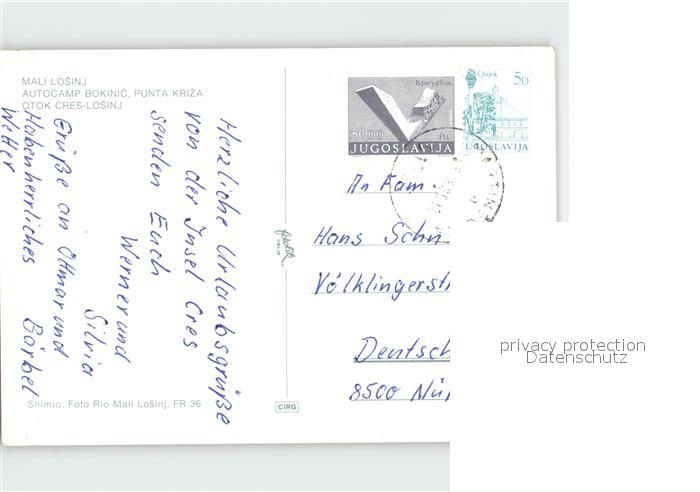 MALI LOŠINJ
AUTOCAMP BOKINIĆ, PUNTA KRIŽA
OTOK CRES-LOŠINJ
Herzliche Urlaubsgrüße
von der Insel Cres
senden Euch
Werner und
Silvia
Grüße an Ottmar und
Bärbel
Haben herrliches
Wetter
Snimio: Foto Rio Mali Lošinj, FR 36
CIRG
5000
JUGOSLAVIJA
Osijek
5D
JUGOSLAVIJA
An Fam.
Hans Schn
Völklingerstr
Deutsch
8500 Nür
privacy protection
Datenschutz